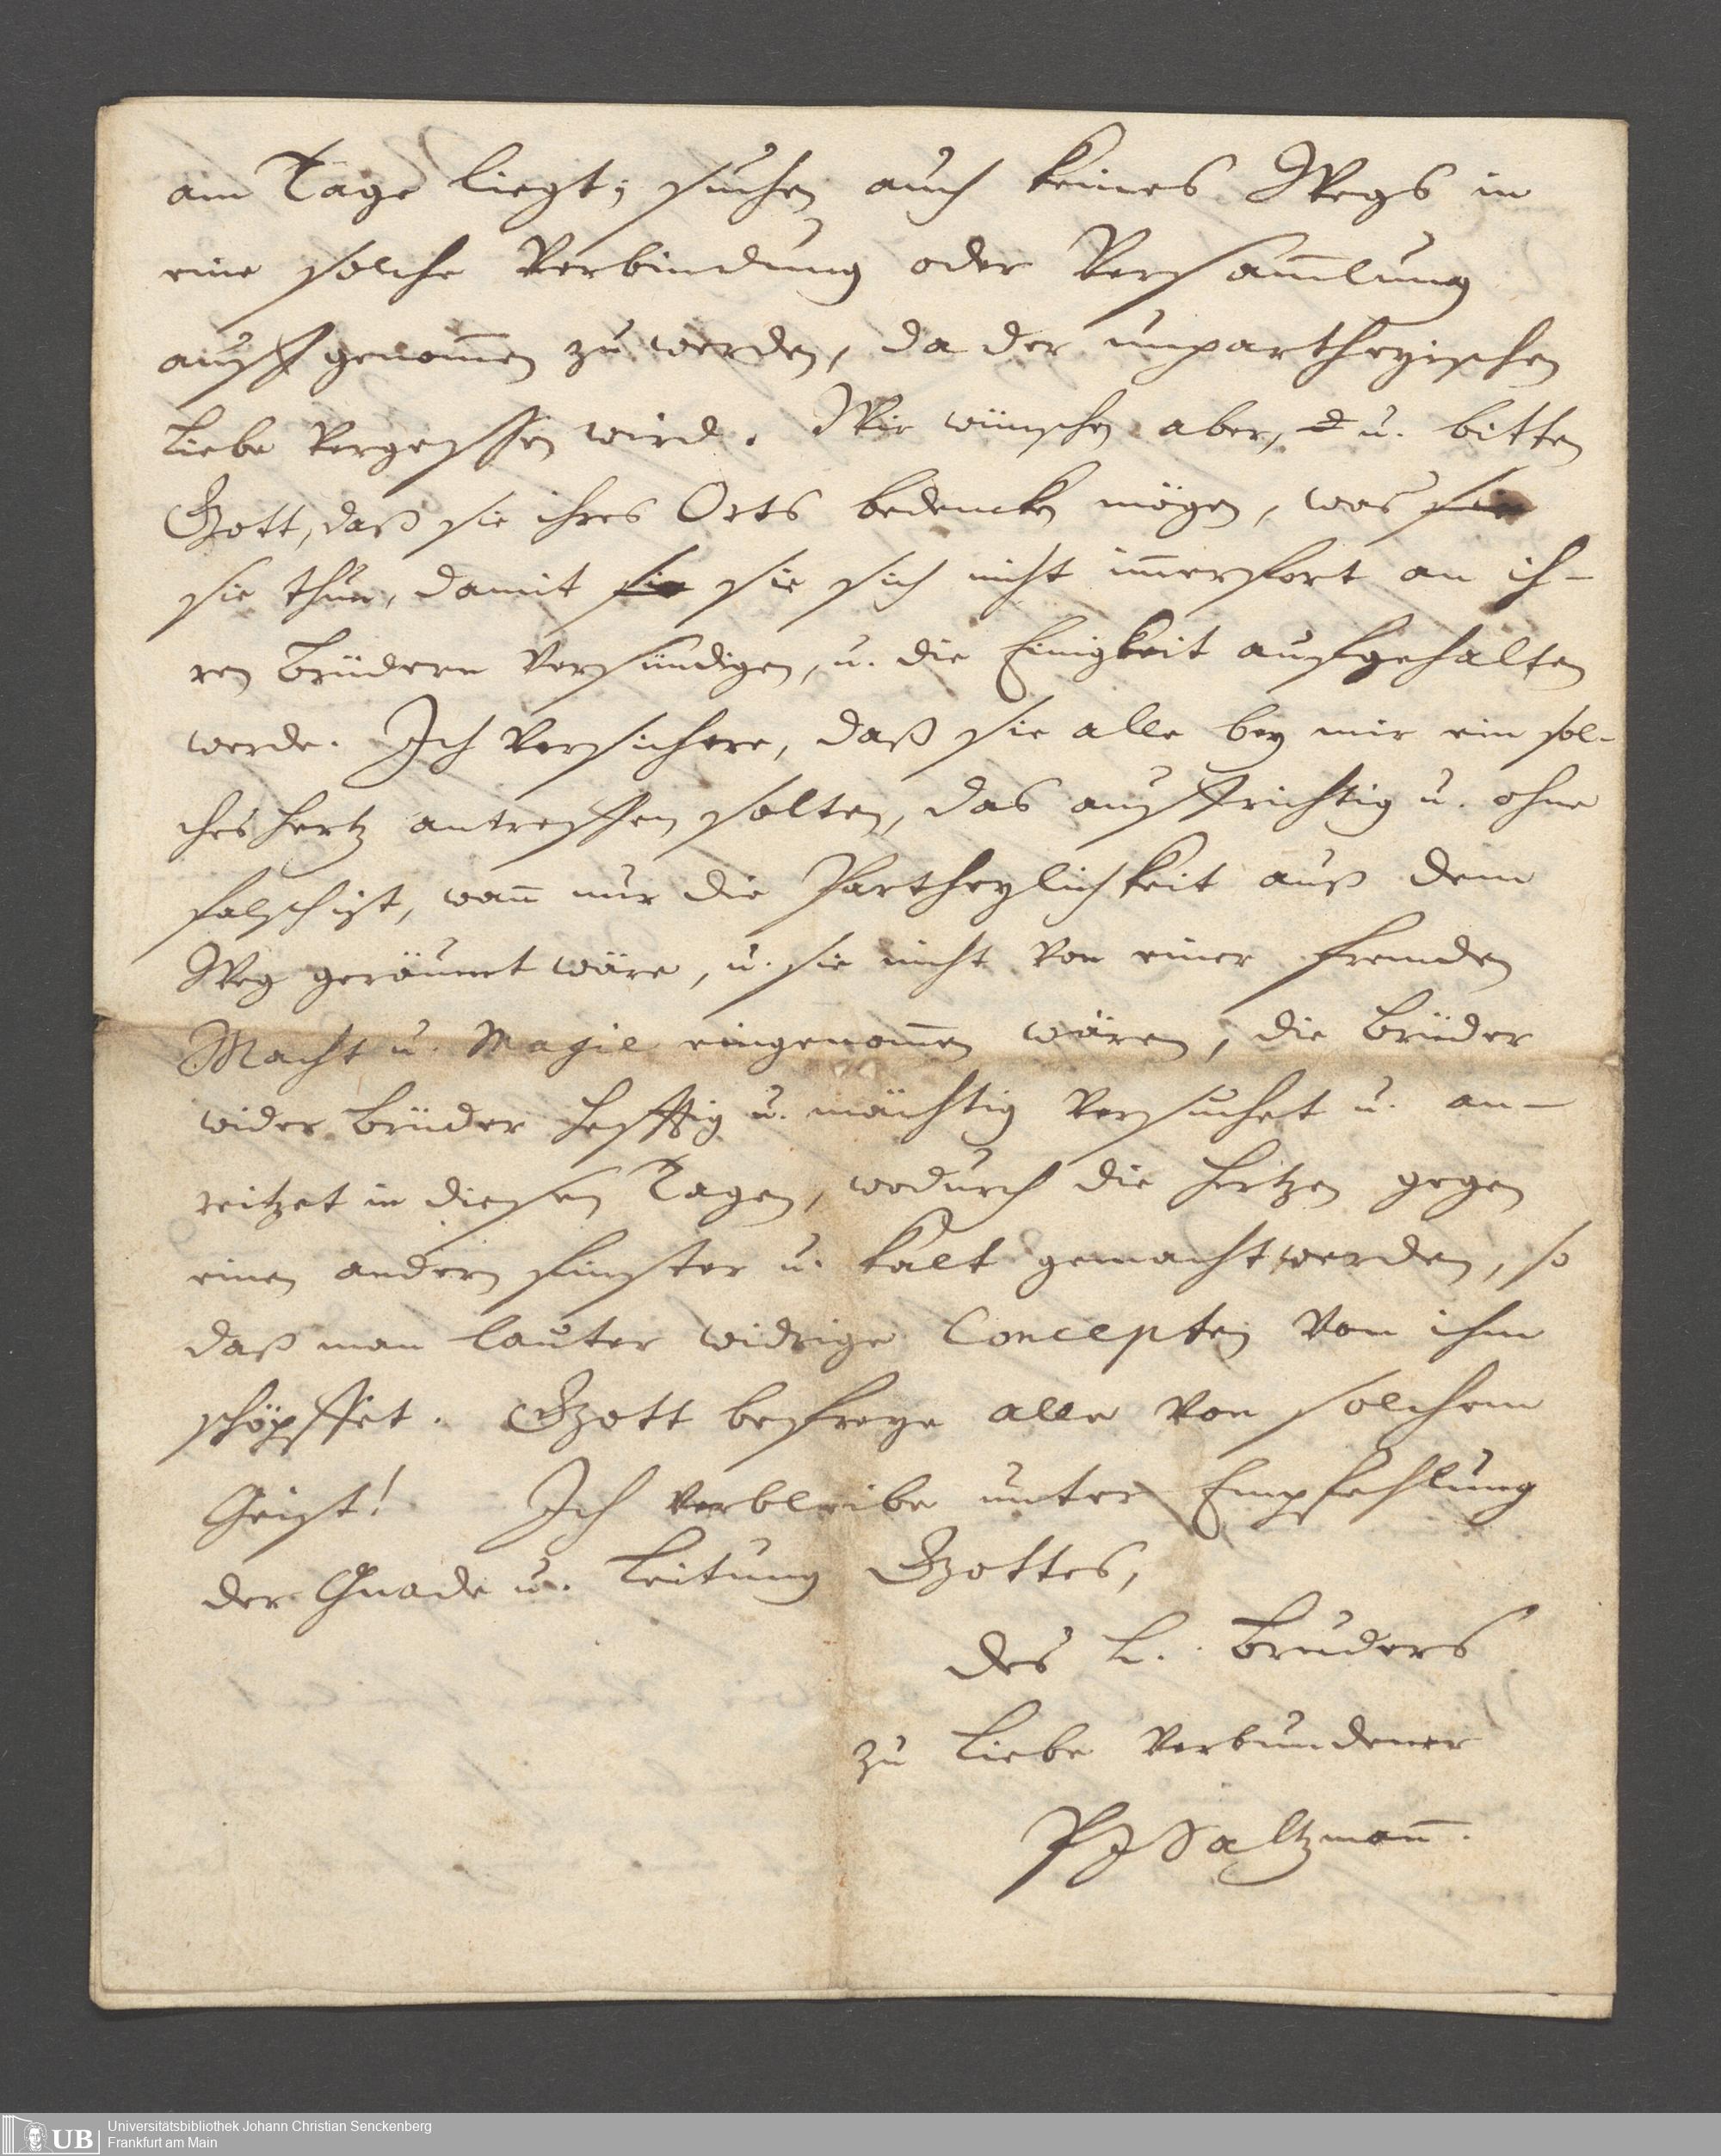 am Tage liegt; suchen auch keines Wegs in
eine solche Verbindung oder Versam̅lung
auffgenom̅en zu werden, da der unpartheyischen
Liebe vergessen wird. Wir wünschen aber, u. bitten
Gott, daß sie ihres Orts bedencken mögen, was sie
sie thun, damit sie sie sich nicht im̅erfort an ih-
ren Brüdern versündigen, u. die Einigkeit aufgehalten
werde. Ich versichere, daß sie alle bey mir ein sol-
ches Hertz antreffen solten, das auffrichtig u. ohne
falsch ist, wan̅ nur die Partheylichkeit auß dem
Weg geräumt wäre, u. sie nicht von einer fremden
Macht u. Magie eingenom̅en wären, die Brüder
wider Brüder hefftig u. mächtig versuchet u. an-
reitzet in diesen Tagen, wodurch die Hertzen gegen
einen andern finster u. kalt gemacht werden, so
daß man lauter widrige Concepten von ihm
schöpffet. Gott befreye alle von solchem
Geist! Ich verbleibe unter Empfehlung
der Gnade u. Leitung Gottes,
des L. Bruders
zu Liebe verbundener
PJSaltzman̅.
UB Universitätsbibliothek Johann Christian Senckenberg
Frankfurt am Main